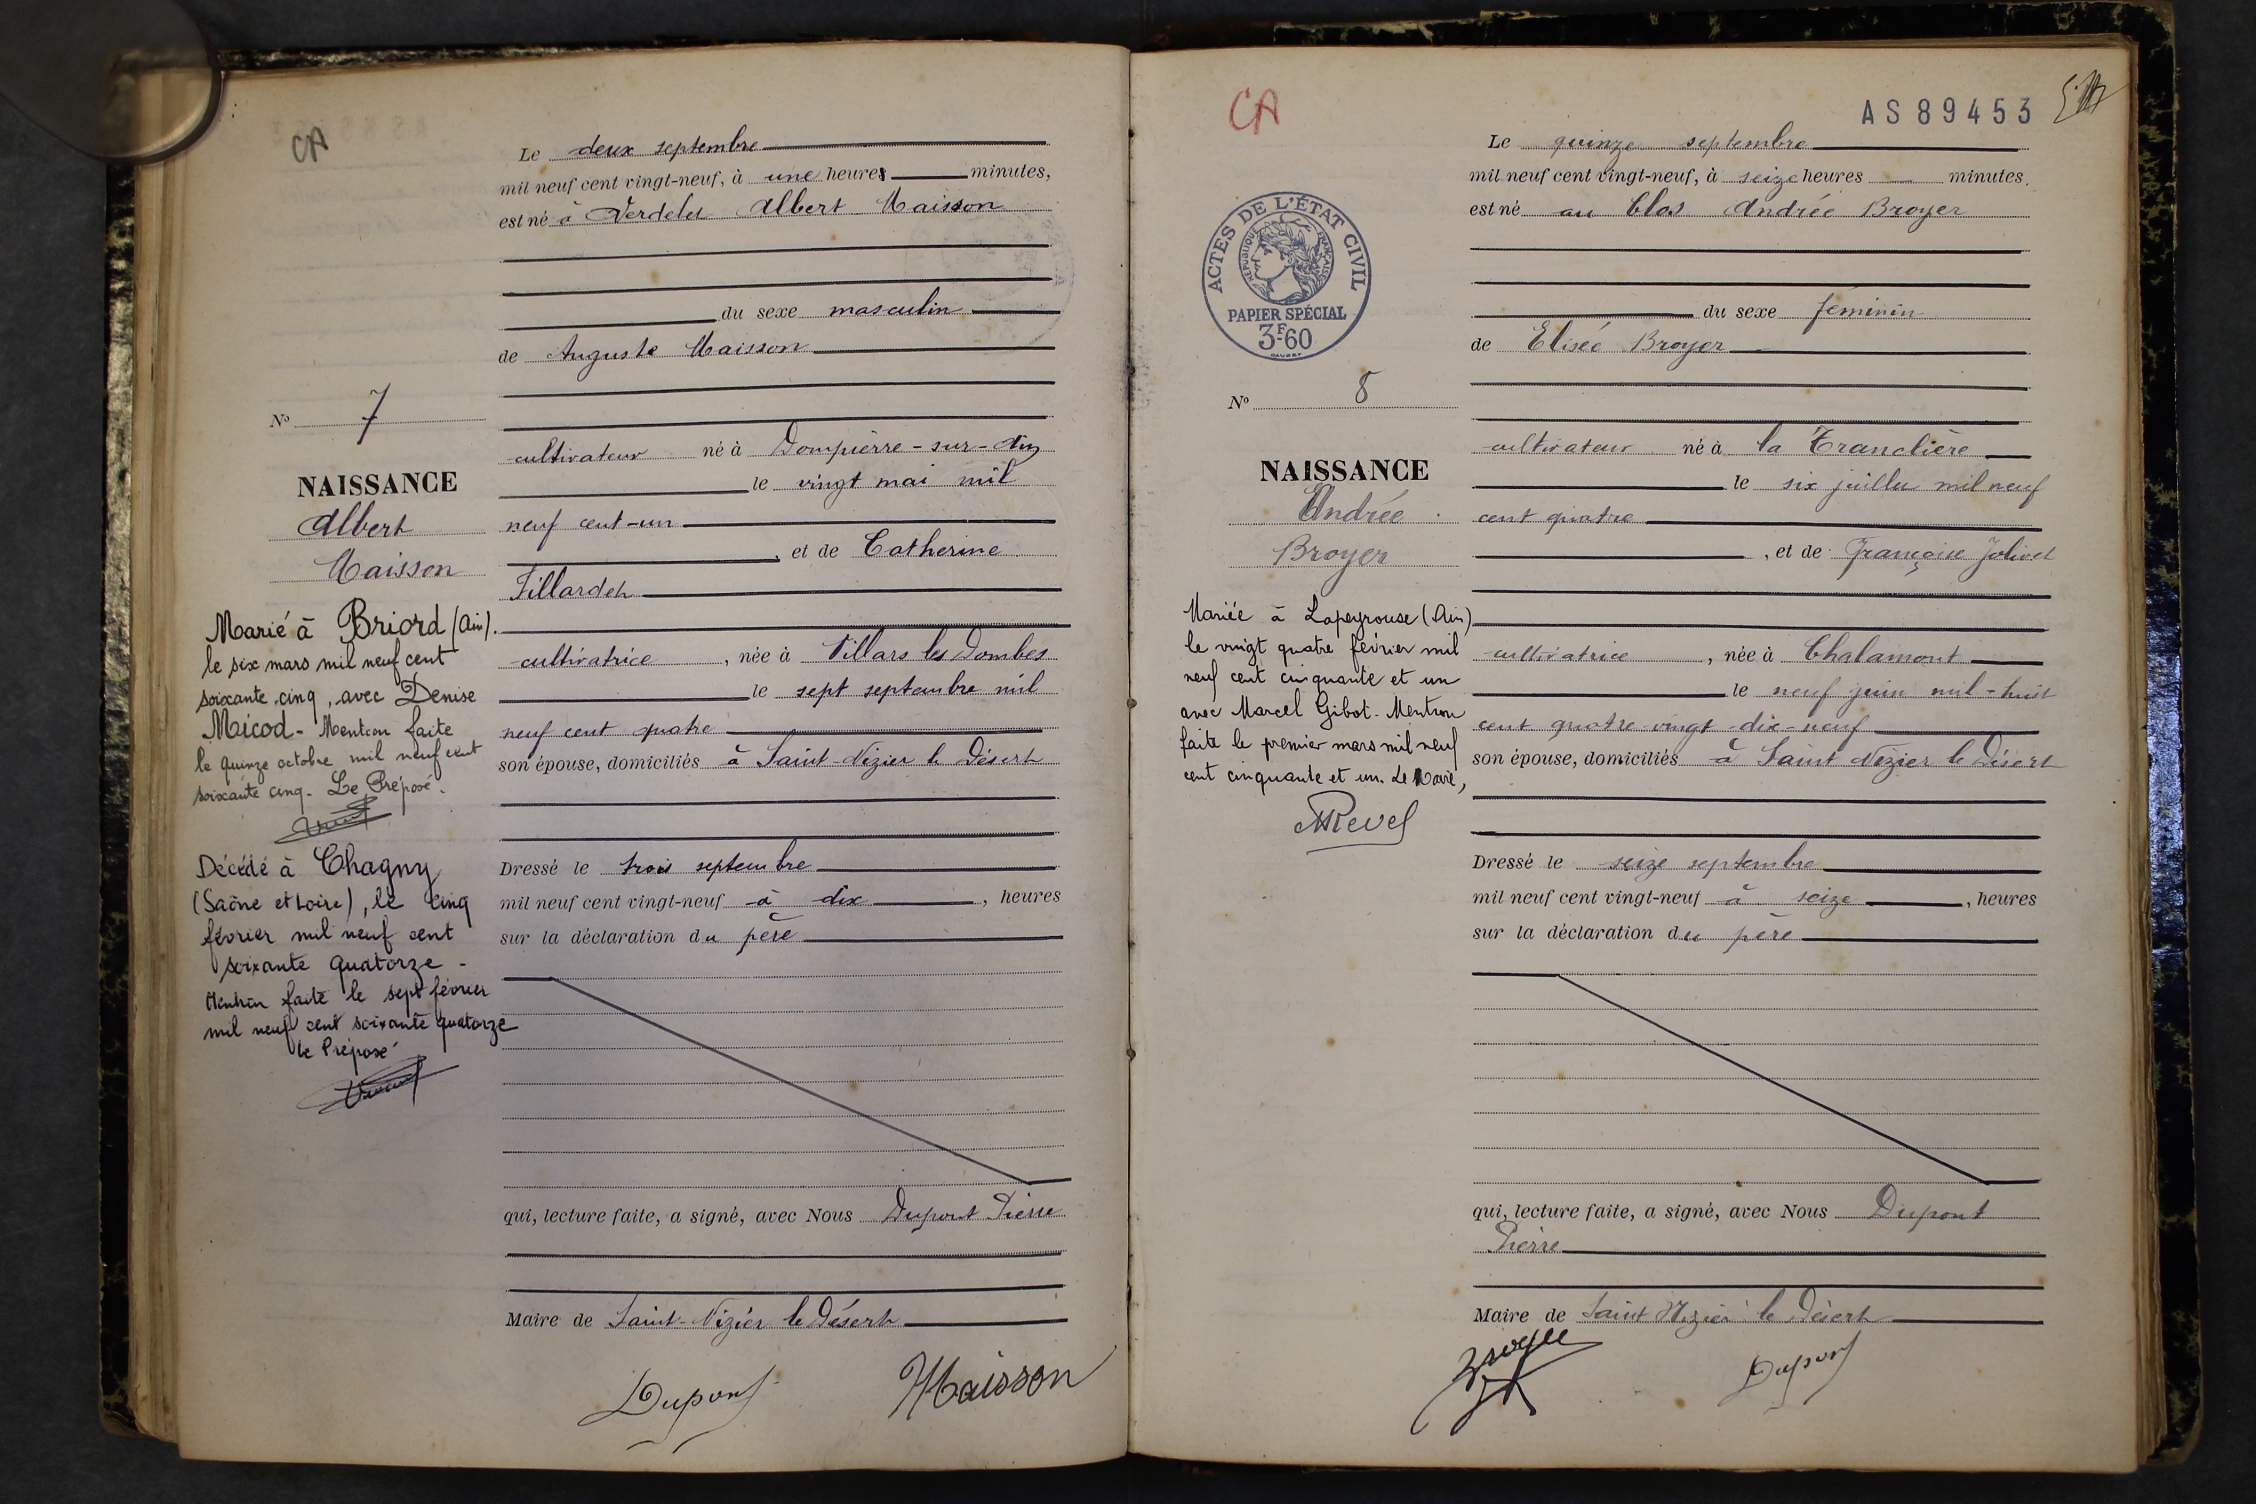 CA
Le deux septembre
mil neuf cent vingt-neuf, à une heures minutes,
est né à Verdelet Albert Maisson
du sexe masculin
de Auguste Maisson
cultivateur né à Dompierre-sur-Ain
le vingt mai mil
neuf cent-un
, et de Catherine
Tillardet
cultivatrice , née à Villars les Dombes
le sept septembre mil
neuf cent quatre
son épouse, domiciliés à Saint-Nizier le Désert
Dressé le trois septembre
mil neuf cent vingt-neuf à dix , heures
sur la déclaration du père
qui, lecture faite, a signé, avec Nous Dupont Pierre
Maire de Saint-Nizier le Désert
Dupont
Maisson
No 7
NAISSANCE
Albert
Maisson
Marié à Briord (Ain).
le six mars mil neuf cent
soixante-cinq, avec Denise
Micod - Mention faite
le quinze octobre mil neuf cent
soixante cinq. Le Préposé.
Décédé à Chagny
(Saône et Loire), le cinq
février mil neuf cent
soixante quatorze -
Mention faite le sept février
mil neuf cent soixante quatorze
le Préposé
CA
AS89453
ACTES DE L'ÉTAT CIVIL
RÉPUBLIQUE FRANÇAISE
PAPIER SPÉCIAL
3F60
Le quinze septembre
mil neuf cent vingt-neuf, à seize heures minutes.
est né au Clos Andrée Broyer
du sexe féminin
de Elisée Broyer
cultivateur né à la Tranclière
le six juillet mil neuf
cent quatre
, et de Françoise Jolivet
cultivatrice , née à Chalamont
le neuf juin mil-huit
cent quatre-vingt-dix-neuf
son épouse, domiciliés à Saint Nizier le Désert
Dressé le seize septembre
mil neuf cent vingt-neuf à seize , heures
sur la déclaration du père
qui, lecture faite, a signé, avec Nous Dupont
Pierre
Maire de Saint Nizier le Désert
Broyer
Dupont
No 8
NAISSANCE
Andrée
Broyer
Mariée à Lapeyrouse (Ain)
le vingt quatre février mil
neuf cent cinquante et un
avec Marcel Gibot. Mention
faite le premier mars mil neuf
cent cinquante et un. Le Maire,
Revel